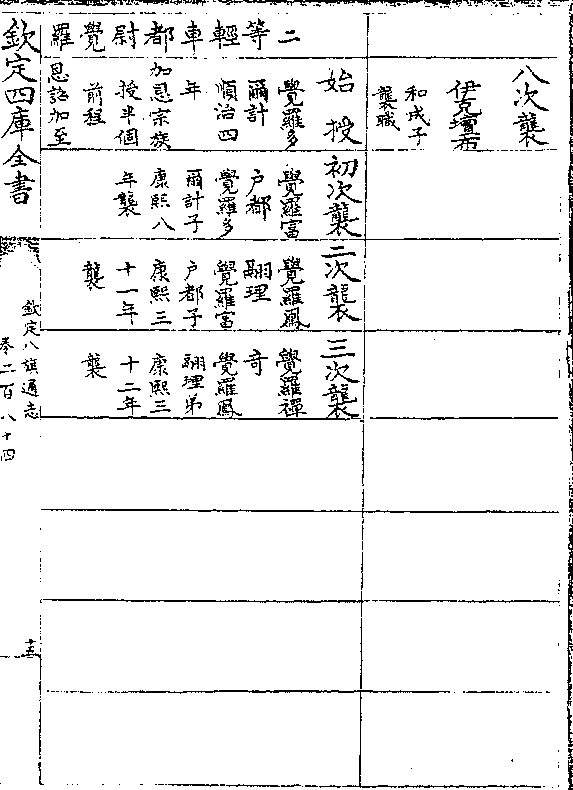 八次襲
伊克壇布
和成子
襲職
二等輕車都尉覺羅
始授
覺羅多
爾計
順治四
年
加恩宗族
授半個
前程
恩詔加至
初次襲
覺羅富
户都
覺羅多
爾計子
康熙八
年襲
二次襲
覺羅鳳
翮理
覺羅富
户都子
康熙三
十一年
襲
三次襲
覺羅禪
奇
覺羅鳳
翮理弟
康熙三
十二年
襲
欽定四庫全書
欽定八旗通志
卷二百八十四
十五